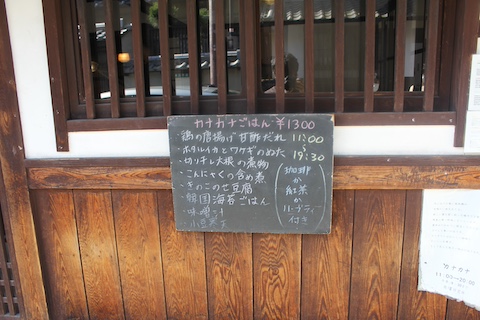 カナカナごはん ¥1300
・鶏の唐揚げ甘酢だれ
・ホタルイカとワケギのぬた
・切り干し大根の煮物
・こんにゃくの含め煮
・きのこのせ豆腐
・韓国海苔ごはん
・味噌汁
11:00
～
19:30
珈琲
か
紅茶
か
ハーブティ
付き
カナカナ
11:00～20:00